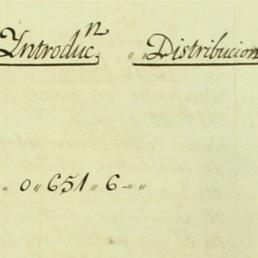 Introduc.n „Distribucion
„ 0„ 651„ 6-„„